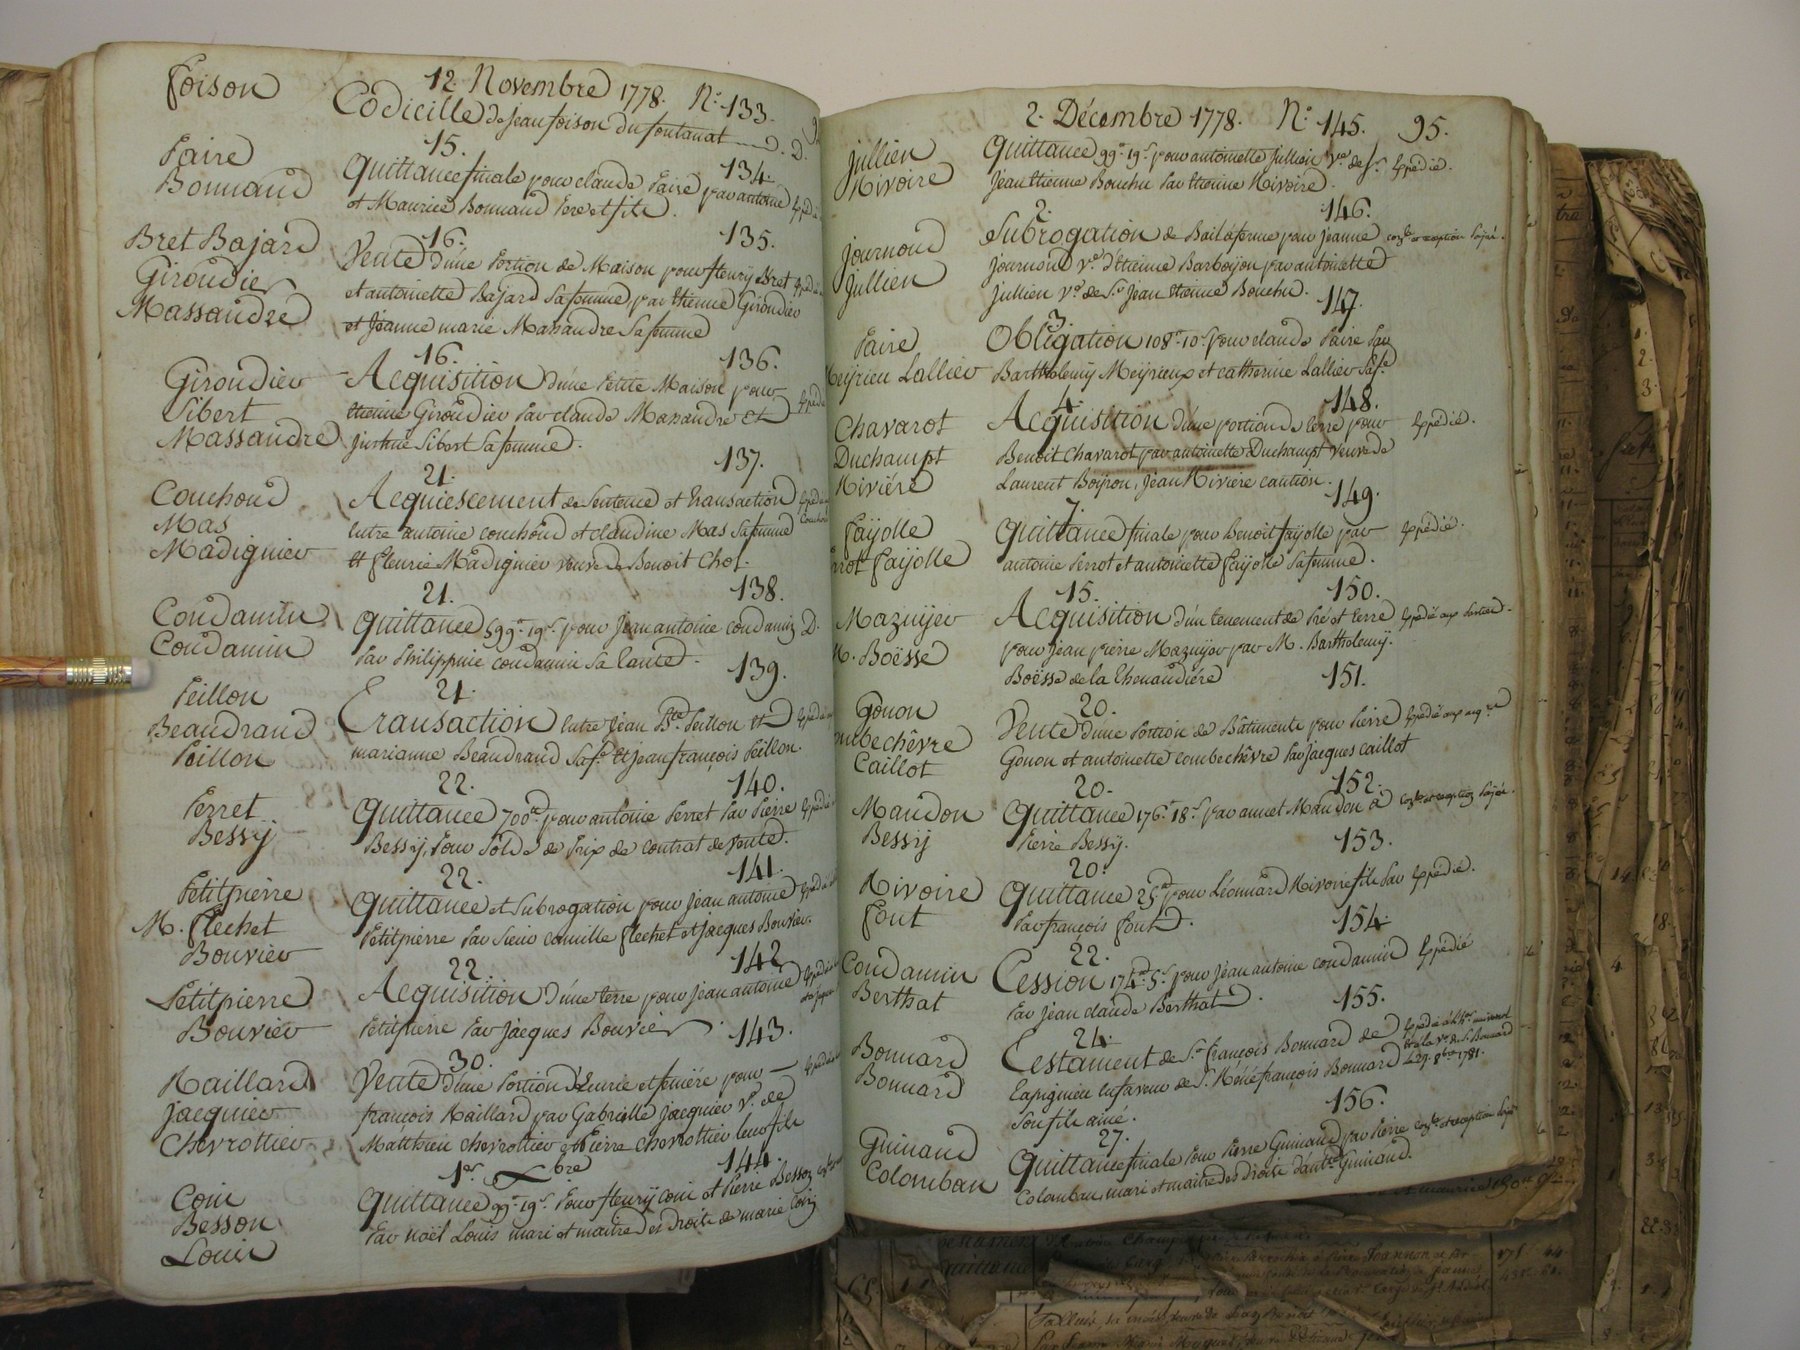 12. Novembre 1778. N.° 133.
foison
Codicille de Jean foison du fontanat D.
15. 134.
Faire
Bonnand
Quittance finale pour claude Faire par antoine Expédié
et Maurice Bonnand Pere et fils.
16. 135.
Bret Bajard
Giroudier
Massandre
Vente d'une Portion de Maison pour fleury Bret
et antoinette Bajard Sa femme, par Etienne Giroudier
et Jeanne marie Massandre Sa femme
16. 136.
Giroudier
Sibert
Massandre
Acquisition d'une Petite Maison pour
Etienne Giroudier Par claude Massandre et
justine Sibert Sa femme.
21. 137.
Couchoud
Mas
Madignier
Acquiescement de Sentence et transaction
Entre antoine couchoud et claudine Mas Sa femme
et fleurie Madignier veuve de Benoit Chol.
21. 138.
Condamin
Condamin
Quittance 599ᵗᵗ 19ˢ pour Jean antoine condamin D.
Par Philippine condamin Sa tante.
21. 139.
Peillon
Beaudrand
Peillon
Transaction Entre Jean B.te Peillon et
marianne Beaudrand Sa fe et Jean françois Peillon.
22. 140.
Perret
Bessy
Quittance 700ᵗᵗ pour antoine Perret Par Pierre
Bessy, Pour Solde de Prix de contrat de vente.
22. 141.
Petitpierre
M. flechet
Bouvier
Quittance et Subrogation pour Jean antoine
Petitpierre Par Sieur camille flechet et jacques Bouvier.
22. 142
Petitpierre
Bouvier
Acquisition d'une terre pour Jean antoine
Petitpierre Par jacques Bouvier.
30. 143.
Raillard
jacquier
Chevrottier
Vente d'une Portion d'Ecurie et feniére pour
françois Raillard par Gabrielle jacquier v.e de
Matthieu chevrottier et Pierre chevrottier leur fils
1.er Xbre 144.
Coin
Besson
Louis
Quittance 99ᵗᵗ 19ˢ Pour fleury coin et Pierre Besson
Par noël Louis mari et maitre des droits de marie Coin
2. Décembre 1778. N.° 145. 95.
jullien
Rivoire
Quittance 99ᵗᵗ 19ˢ pour antoinette jullien v.e de S.r Expédié.
Jean Etienne Bouchu Par Etienne Rivoire.
2. 146.
journoud
jullien
Subrogation de Bail à ferme pour jeanne
journoud v.e d'Etienne Barboyon par antoinette
jullien v.e de S.r Jean Etienne Bouchu.
3. 147.
Faire
Meyrieu Lallier
Obligation 108ᵗᵗ 10ˢ Pour claude Faire Par
Barthelemy Meyrieux et catherine Lallier Sa fe
4. 148.
Chavarot
Duchampt
Riviére
Acquisition d'une portion de terre pour Expédié.
Benoit Chavarot par antoinette Duchampt veuve de
Laurent Boyron, Jean Riviére caution.
7. 149.
fayolle
rrot fayolle
Quittance finale pour Benoit fayolle par Expédié.
antoine Perrot et antoinette fayolle Sa femme.
15. 150.
Mazuyer
M. Boësse
Acquisition d'un tenement de Pré et terre Expédié aux Parties.
pour Jean pierre Mazuyer par M. Barthelemy.
Boësse de la thenaudiere
20. 151.
Gonon
mbechêvre
Caillot
Vente d'une Portion de Bâtiments pour Pierre
Gonon et antoinette combechêvre Par Jacques caillot
20. 152.
Maudon
Bessy
Quittance 176ᵗᵗ 18ˢ par annet Maudon à
Pierre Bessy.
20. 153.
Rivoire
font
Quittance 25ᵗᵗ pour Léonnard Rivoire fils Par Expédié.
Par françois font.
22. 154.
Condamin
Berthat
Cession 174ᵗᵗ 5ˢ pour jean antoine condamin Expédié
Par jean claude Berthat.
24. 155.
Bonnard
Bonnard
Testament de S.r françois Bonnard de
Lapignieu En faveur de S.r Réné françois Bonnard
Son fils ainé. le 29. 8bre 1781.
27. 156.
Guinand
Colomban
Quittance finale Pour Pierre Guinand par Pierre
Colomban, mari et maitre des Droits d'ant.te Guinand.